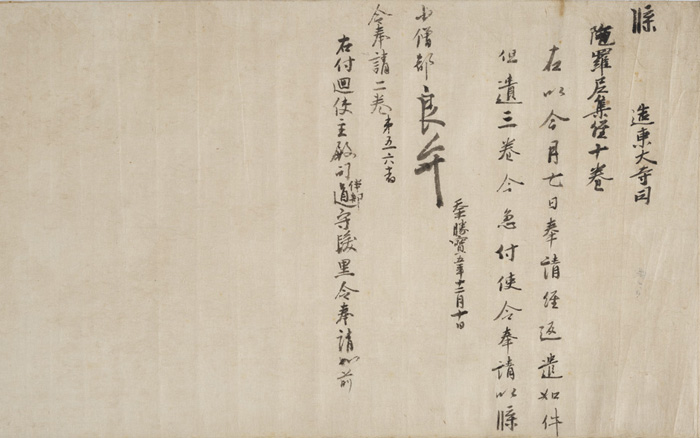 牒 造東大寺司
陁羅尼集経十巻
右以今月七日奉請経返遣如件
但遺三巻今急付使令奉請以牒
天平勝寶五年十二月十日
少僧都良弁
令奉請二巻 第五六者
右付廻使主殿司伴部道守 黒令奉請如前